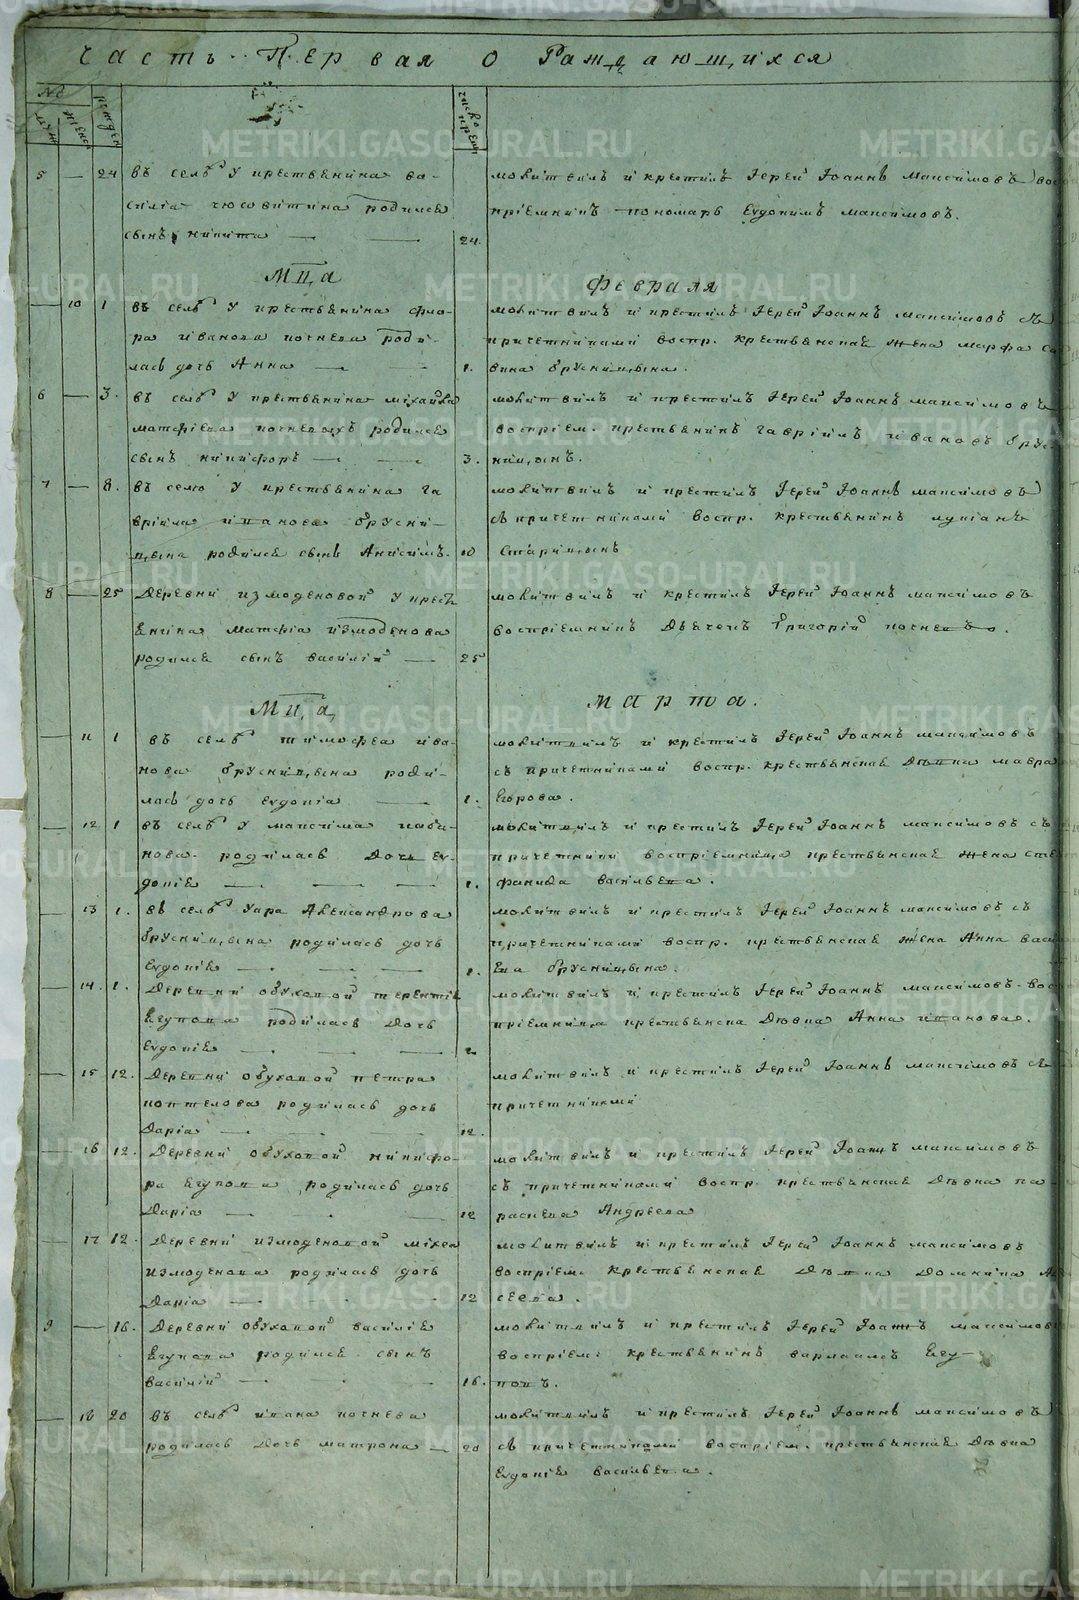 Часть Первая о Раждающихся
№
муж
женс
рожден
число крещ
5 — 24 въ селѣ У крестьянина ва-
силіа чюсовитина родился
сынъ никита — — 24.
молитвилъ и крестилъ Іерей Іоаннъ Максимовъ вос
пріемникъ пономарь Евдокимъ Максимовъ.
Мц,а Февраля
— 10 1 въ селѣ У крестьянина фло-
ра иванова кочнева роди-
лась дочь Анна — — 1.
молитвилъ и крестилъ Іерей Іоаннъ Максимовъ съ
причетниками воспр. крестьянская жена Марфа Са
вина брусницына.
6 — 3. въ селѣ У крестьянина михаила
матфіева кочневыхъ родился
сынъ никифоръ — — 3.
молитвилъ и крестилъ Іерей Іоаннъ максимовъ
воспріем. крестьянинъ гавріилъ ивановъ брус-
ницынъ.
7 — 8. въ селѣ У крестьянина га
вріила иванова брусни-
цына родился сынъ Анисимъ. 10
молитвилъ и крестилъ Іерей Іоаннъ максимовъ
съ причетниками воспр. крестьянинъ лукіанъ
Старицынъ
8 — 25 Деревни измоденовой У крест
янина Матфіа измоденова
родился сынъ василій — 25
молитвилъ и крестилъ Іерей Іоаннъ максимовъ
воспріемникъ Дьячекъ Григорій кочневъ.
Мц,а Марта.
— 11 1 въ селѣ тимофеа ива-
нова брусницына роди-
лась дочь евдокіа — 1.
молитвилъ и крестилъ Іерей Іоаннъ максимовъ
съ причетниками воспр. крестьянская Дѣвка мавра
Егорова.
— 12 1 въ селѣ У максима
нова. родилась Дочь ев-
докіе — — — 1.
молитвилъ и крестилъ Іерей Іоаннъ максимовъ съ
причетники воспріемница крестьянская жена Сте
фанида васильева.
— 13 1. въ селѣ Александрова
брусницына родилась дочь
Евдокіе — — — 1.
молитвилъ и крестилъ Іерей Іоаннъ максимовъ съ
причетниками воспр. крестьянская жена Анна васи
Ева брусницына.
— 14. 1. Деревни обуховой терентіе
Егупова родилась Дочь
Евдокіе — — —
молитвилъ и крестилъ Іерей Іоаннъ максимовъ. вос
пріемница крестьянска Дѣвка Анна иванова.
— 15 12. Деревни обуховой петра
коптелова родилась дочь
Даріа — 12.
молитвилъ и крестилъ Іерей Іоаннъ максимовъ съ
причетниками
— 16 12. Деревни обуховой никифо-
ра Егупова родилась дочь
Даріа — 12
молитвилъ и крестилъ Іерей Іоаннъ максимовъ
съ причетниками воспр. крестьянская Дѣвка па
раскева Андреева
— 17 12. Деревни измоденовой михеа
измоденова родилась дочь
Даріа — 12
молитвилъ и крестилъ Іерей Іоаннъ максимовъ
воспріем. крестьянская Дѣвка Домника
сеева.
9 — 16. Деревни обуховой василіе
Егупова родился сынъ
василій — 16.
молитвилъ и крестилъ Іерей Іоаннъ максимов
воспріем. крестьянинъ варлаамъ Егу-
повъ.
— 18 20 въ селѣ ивана кочнева
родилась Дочь матрона — 20
молитвилъ и крестилъ Іерей Іоаннъ максимовъ
съ причетниками воспріем. крестьянская Дѣвка
Евдокіе васильева.
METRIKI.GASO-URAL.RU